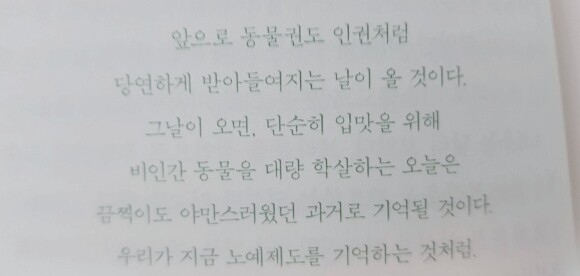 앞으로 동물권도 인권처럼
당연하게 받아들여지는 날이 올 것이다.
그날이 오면, 단순히 입맛을 위해
비인간 동물을 대량 학살하는 오늘은
끔찍이도 야만스러웠던 과거로 기억될 것이다.
우리가 지금 노예제도를 기억하는 것처럼.